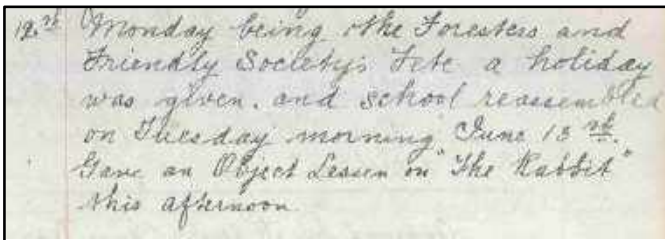 12.th Monday being the Foresters and
Friendly Society's Fete a holiday
was given. and school reassembled
on Tuesday morning June 13th.
Gave an Object Lesson on "The Rabbit"
this afternoon